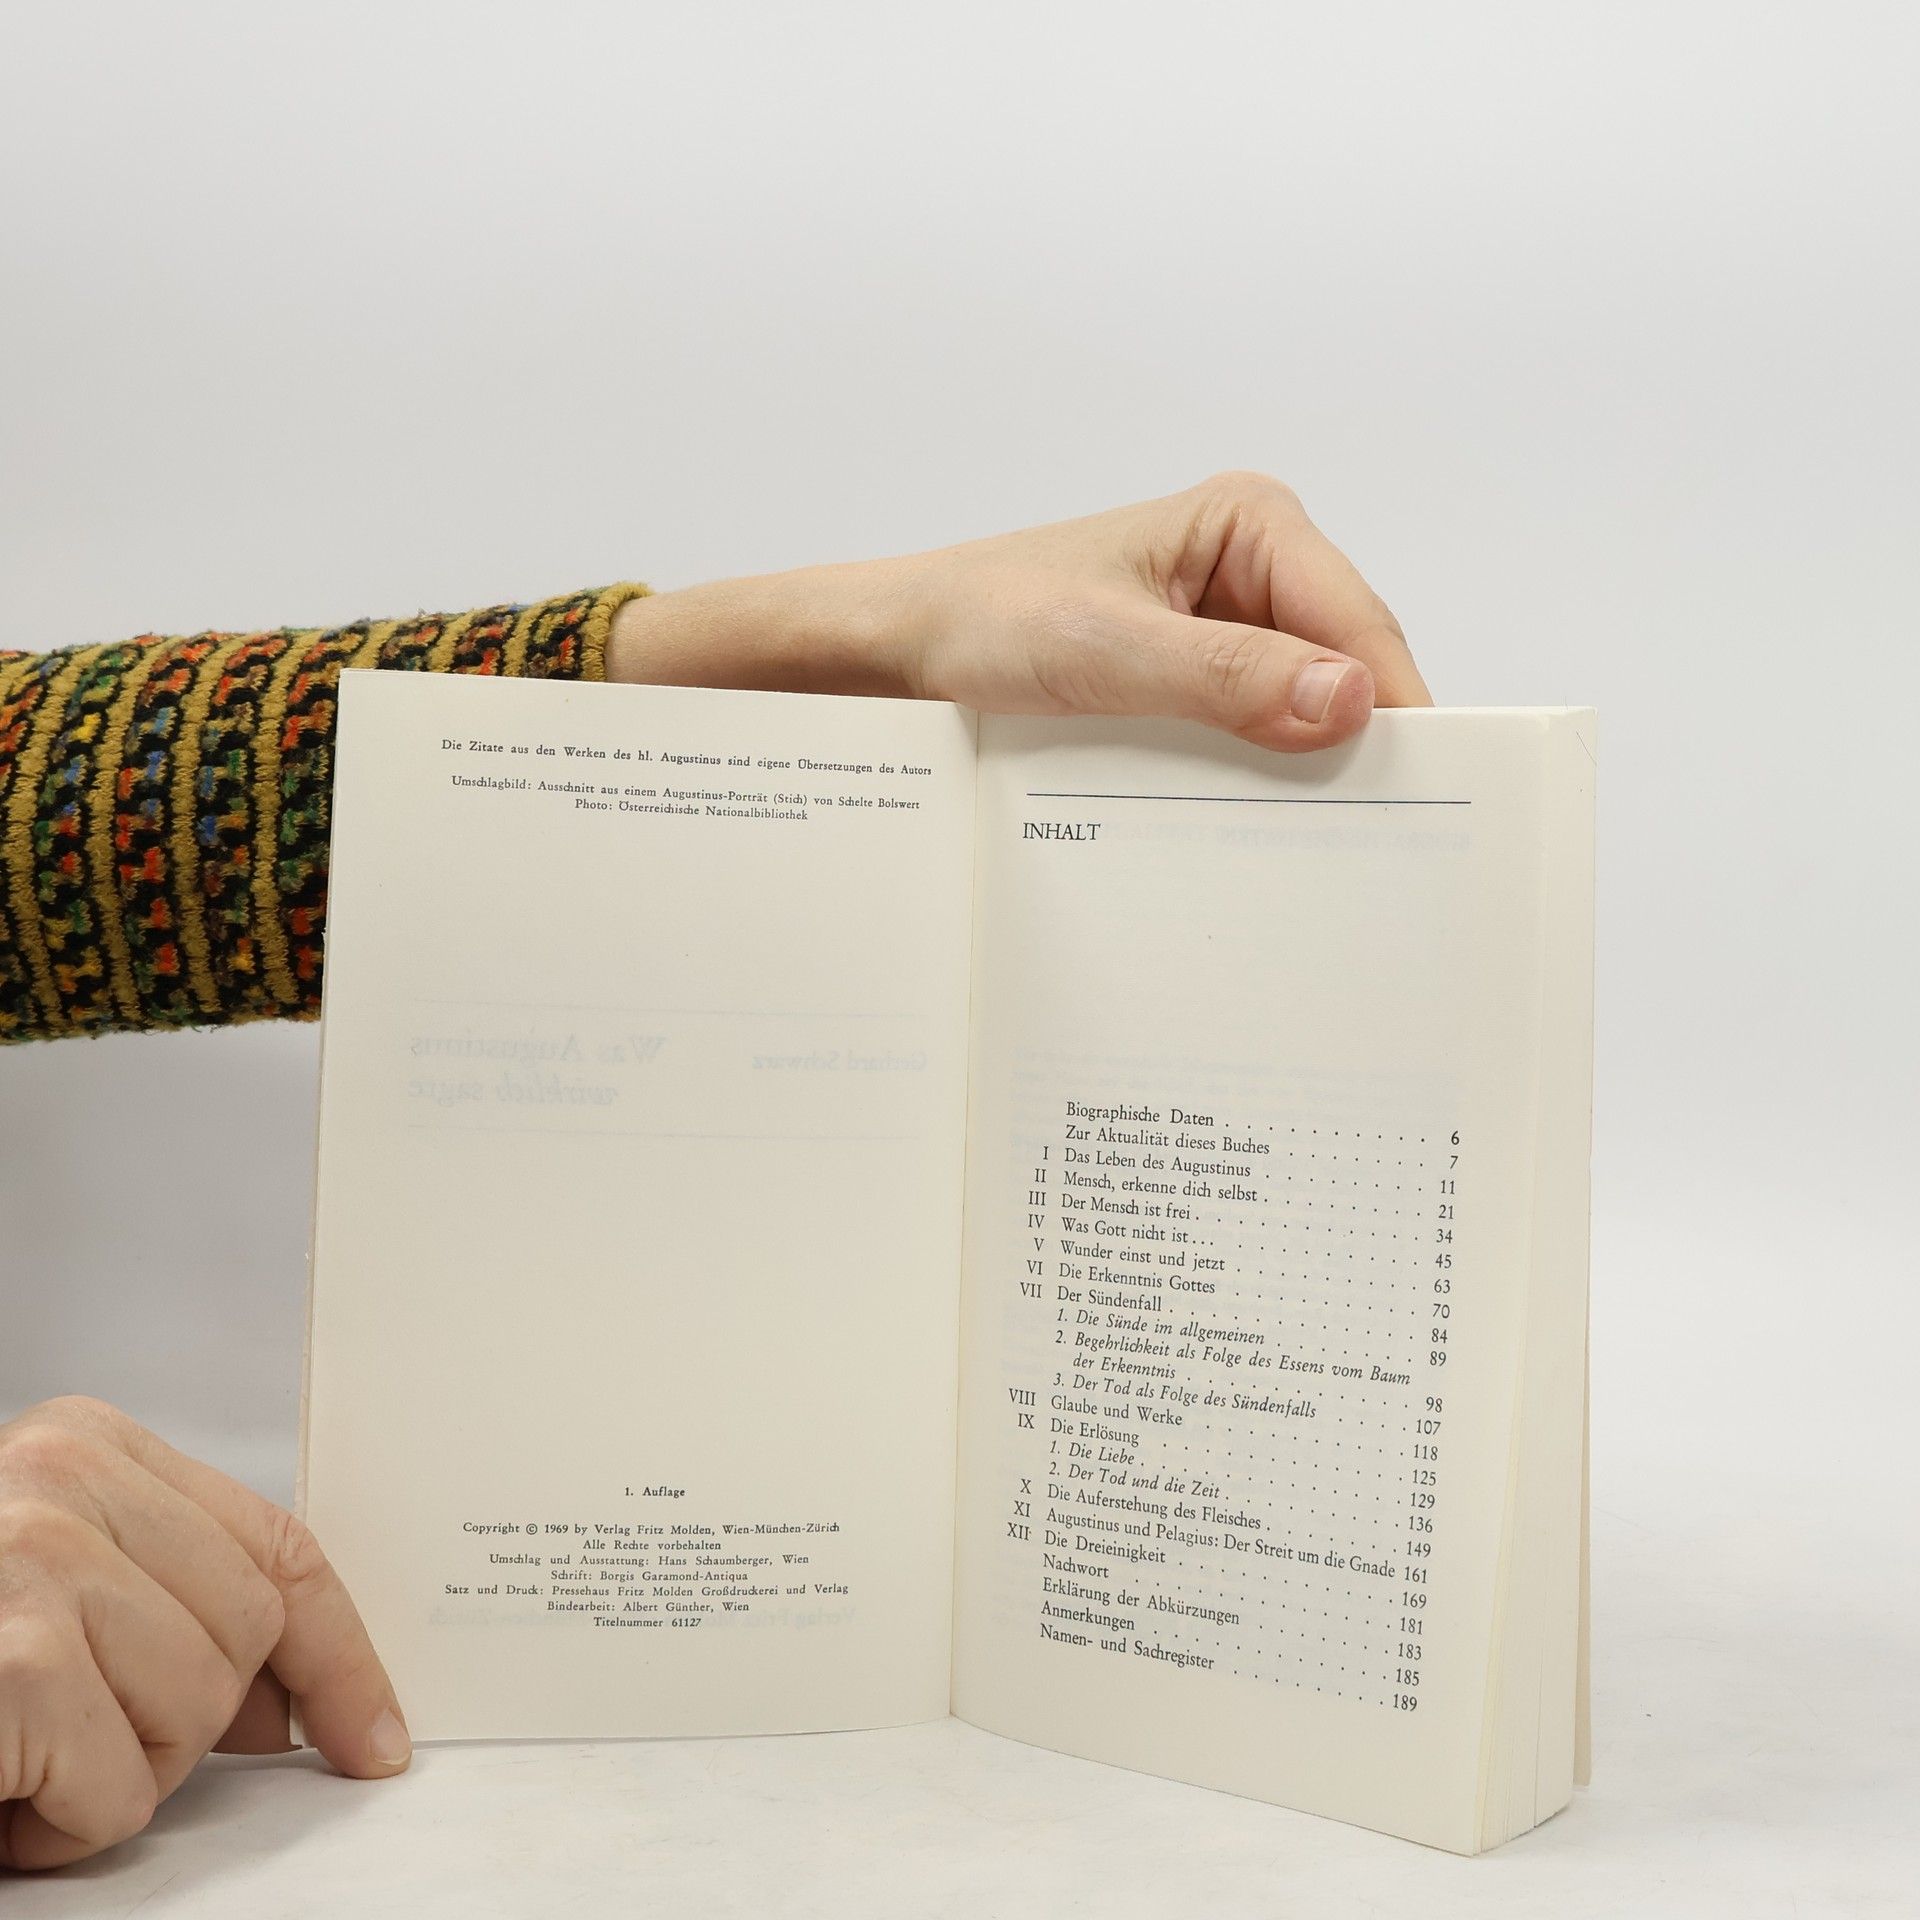 Die Zitate aus den Werken des hl. Augustinus sind eigene Übersetzungen des Autors
Umschlagbild: Ausschnitt aus einem Augustinus-Porträt (Stich) von Schelte Bolswert
Photo: Österreichische Nationalbibliothek
1. Auflage
Copyright © 1969 by Verlag Fritz Molden, Wien-München-Zürich
Alle Rechte vorbehalten
Umschlag und Ausstattung: Hans Schaumberger, Wien
Schrift: Borgis Garamond-Antiqua
Satz und Druck: Pressehaus Fritz Molden Großdruckerei und Verlag
Bindearbeit: Albert Günther, Wien
Titelnummer 61127
INHALT
Biographische Daten . . . . . . . . . . 6
Zur Aktualität dieses Buches . . . . . . . 7
I Das Leben des Augustinus . . . . . . . . 11
II Mensch, erkenne dich selbst . . . . . . . . 21
III Der Mensch ist frei . . . . . . . . . . 34
IV Was Gott nicht ist... . . . . . . . . . 45
V Wunder einst und jetzt . . . . . . . . . 63
VI Die Erkenntnis Gottes . . . . . . . . . 70
VII Der Sündenfall . . . . . . . . . . . 84
1. Die Sünde im allgemeinen . . . . . . . 89
2. Begehrlichkeit als Folge des Essens vom Baum
der Erkenntnis . . . . . . . . . . 98
3. Der Tod als Folge des Sündenfalls . . . . 107
VIII Glaube und Werke . . . . . . . . . . 118
IX Die Erlösung . . . . . . . . . . . 125
1. Die Liebe . . . . . . . . . . . . 129
2. Der Tod und die Zeit . . . . . . . . 136
X Die Auferstehung des Fleisches . . . . . . . 149
XI Augustinus und Pelagius: Der Streit um die Gnade 161
XII Die Dreieinigkeit . . . . . . . . . . 169
Nachwort . . . . . . . . . . . . 181
Erklärung der Abkürzungen . . . . . . . 183
Anmerkungen . . . . . . . . . . . 185
Namen- und Sachregister . . . . . . . . 189